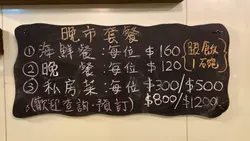 晚市套餐
①海鮮餐:每位 $160 {跟飲
②晚　餐:每位 $120 1碗}
③私房菜:每位 $300/$500
(歡迎查詢·預訂) $800/$1200